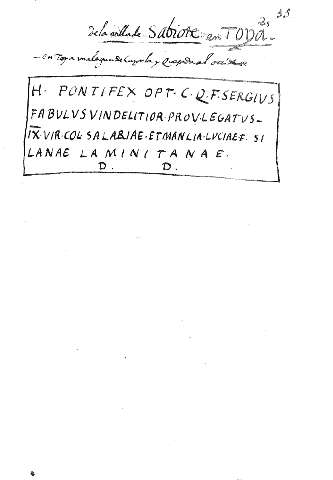 35
de la villa de Sabiote en TOYA
en Toya una legua de Caçorla y Quesada al occidente
H. PONTIFEX OPT. C. Q. F. SERGIUS
FABULVS VINDELITIOR. PROV. LEGATUS
IX VIR. COL SALARIAE. ET MANLIA. LUCIAE F. SI
LANAE LAMINITANAE.
D. D.